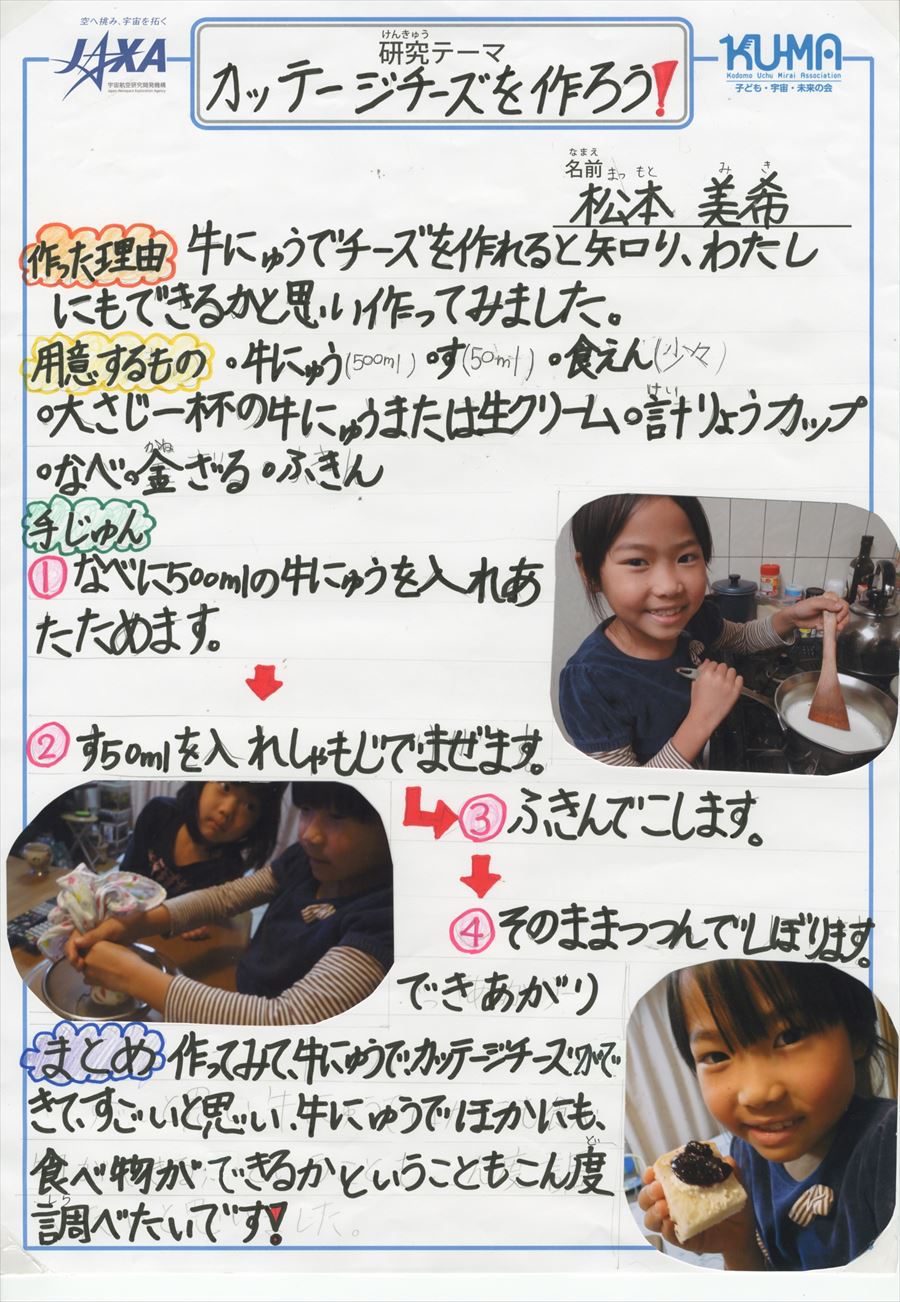 空へ挑み、宇宙を拓く
JAXA
宇宙航空研究開発機構
Japan Aerospace Exploration Agency
けんきゅう
研究テーマ
カッテージチーズを作ろう!
KU-MA
Kodomo Uchu Mirai Association
子ども・宇宙・未来の会
なまえ
名前
まつ もと み き
松本 美希
作った理由 牛にゅうでチーズを作れると知り、わたし
にもできるかと思い作ってみました。
用意するもの ・牛にゅう(500ml) ・す(50ml) ・食えん(少々)
はい
・大さじ一杯の牛にゅうまたは生クリーム・計りょうカップ
かな
・なべ・金ざる・ふきん
手じゅん
① なべに500mlの牛にゅうを入れあ
たためます。
② す50mlを入れしゃもじでまぜます。
③ ふきんでこします。
④ そのままつつんでしぼります。
できあがり
まとめ 作ってみて、牛にゅうでカッテージチーズがで
きて、すごいと思い、牛にゅうでほかにも、
ど
食べ物ができるかということもこん度
しら
調べたいです!